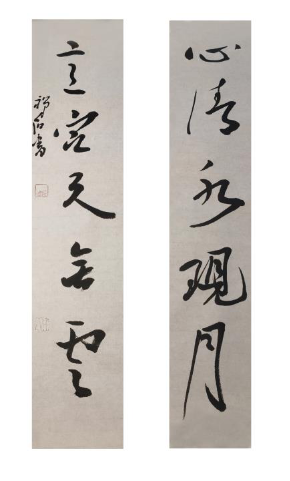 心清水現月
意定天無雲